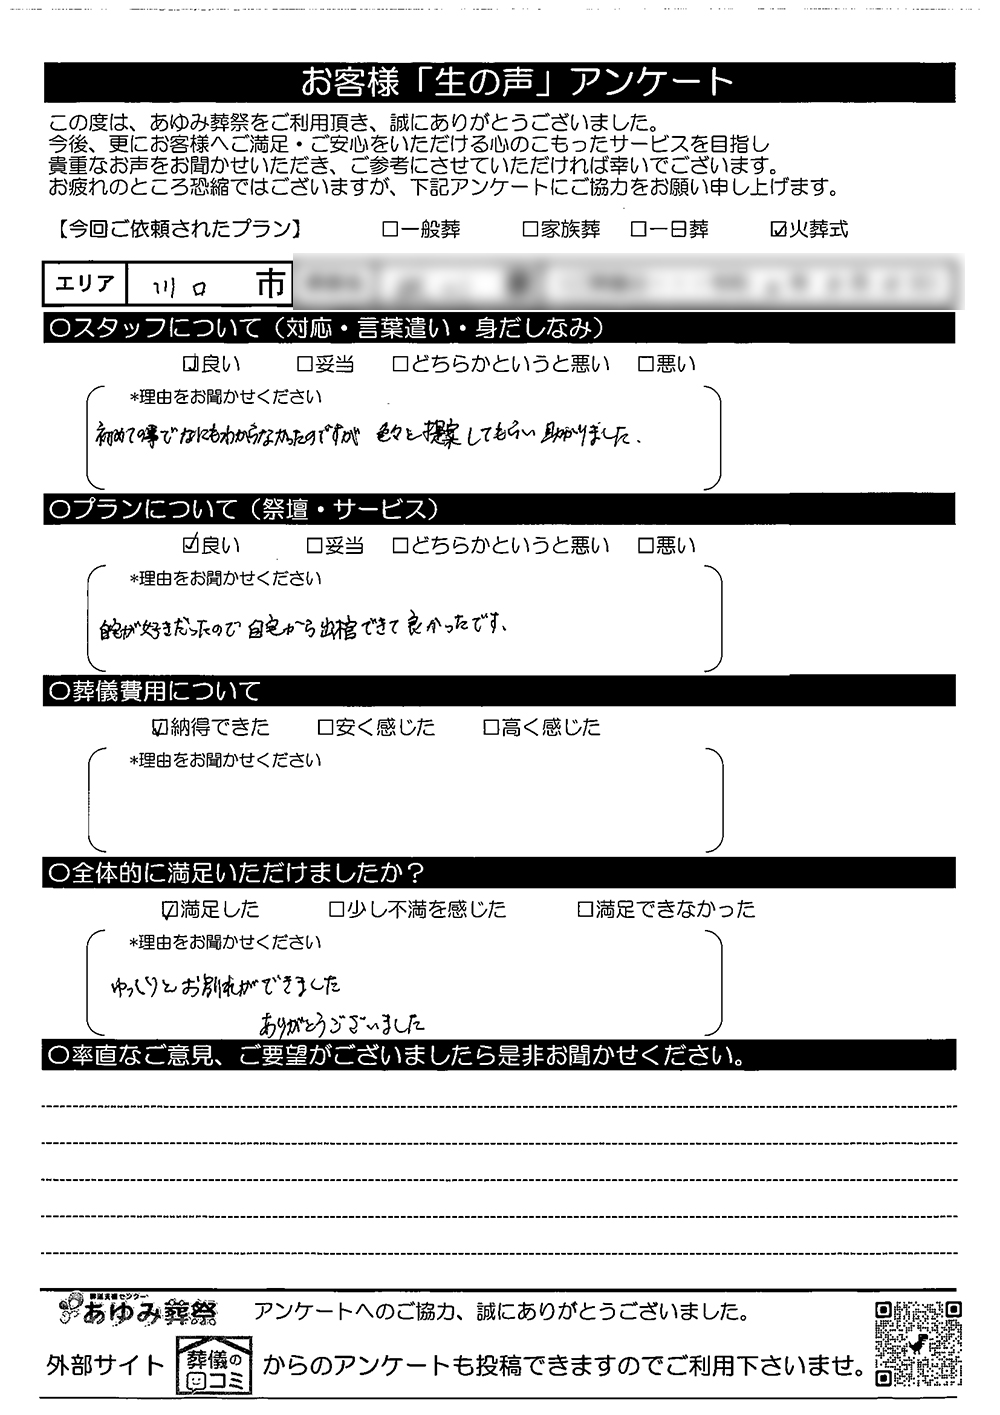 お客様「生の声」アンケート
この度は、あゆみ葬祭をご利用頂き、誠にありがとうございました。
今後、更にお客様へご満足・ご安心をいただける心のこもったサービスを目指し
貴重なお声をお聞かせいただき、ご参考にさせていただければ幸いでございます。
お疲れのところ恐縮ではございますが、下記アンケートにご協力をお願い申し上げます。
【今回ご依頼されたプラン】 □一般葬 □家族葬 □一日葬 ☑火葬式
エリア 川口 市
〇スタッフについて（対応・言葉遣い・身だしなみ）
☑良い □妥当 □どちらかというと悪い □悪い
*理由をお聞かせください
初めての事でなにもわからなかったのですが 色々と提案してもらい助かりました.
〇プランについて（祭壇・サービス）
☑良い □妥当 □どちらかというと悪い □悪い
*理由をお聞かせください
自宅が好きだったので自宅から出棺できて良かったです、
〇葬儀費用について
☑納得できた □安く感じた □高く感じた
*理由をお聞かせください
〇全体的に満足いただけましたか？
☑満足した □少し不満を感じた □満足できなかった
*理由をお聞かせください
ゆっくりとお別れができました
ありがとうございました
〇率直なご意見、ご要望がございましたら是非お聞かせください。
葬送支援センター
あゆみ葬祭 アンケートへのご協力、誠にありがとうございました。
外部サイト 葬儀の口コミ からのアンケートも投稿できますのでご利用下さいませ。